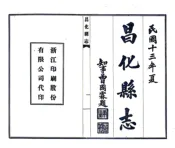 民國十三年夏
昌化縣志
知事曾國霖題
昌化縣志
浙江印刷股份
有限公司代印